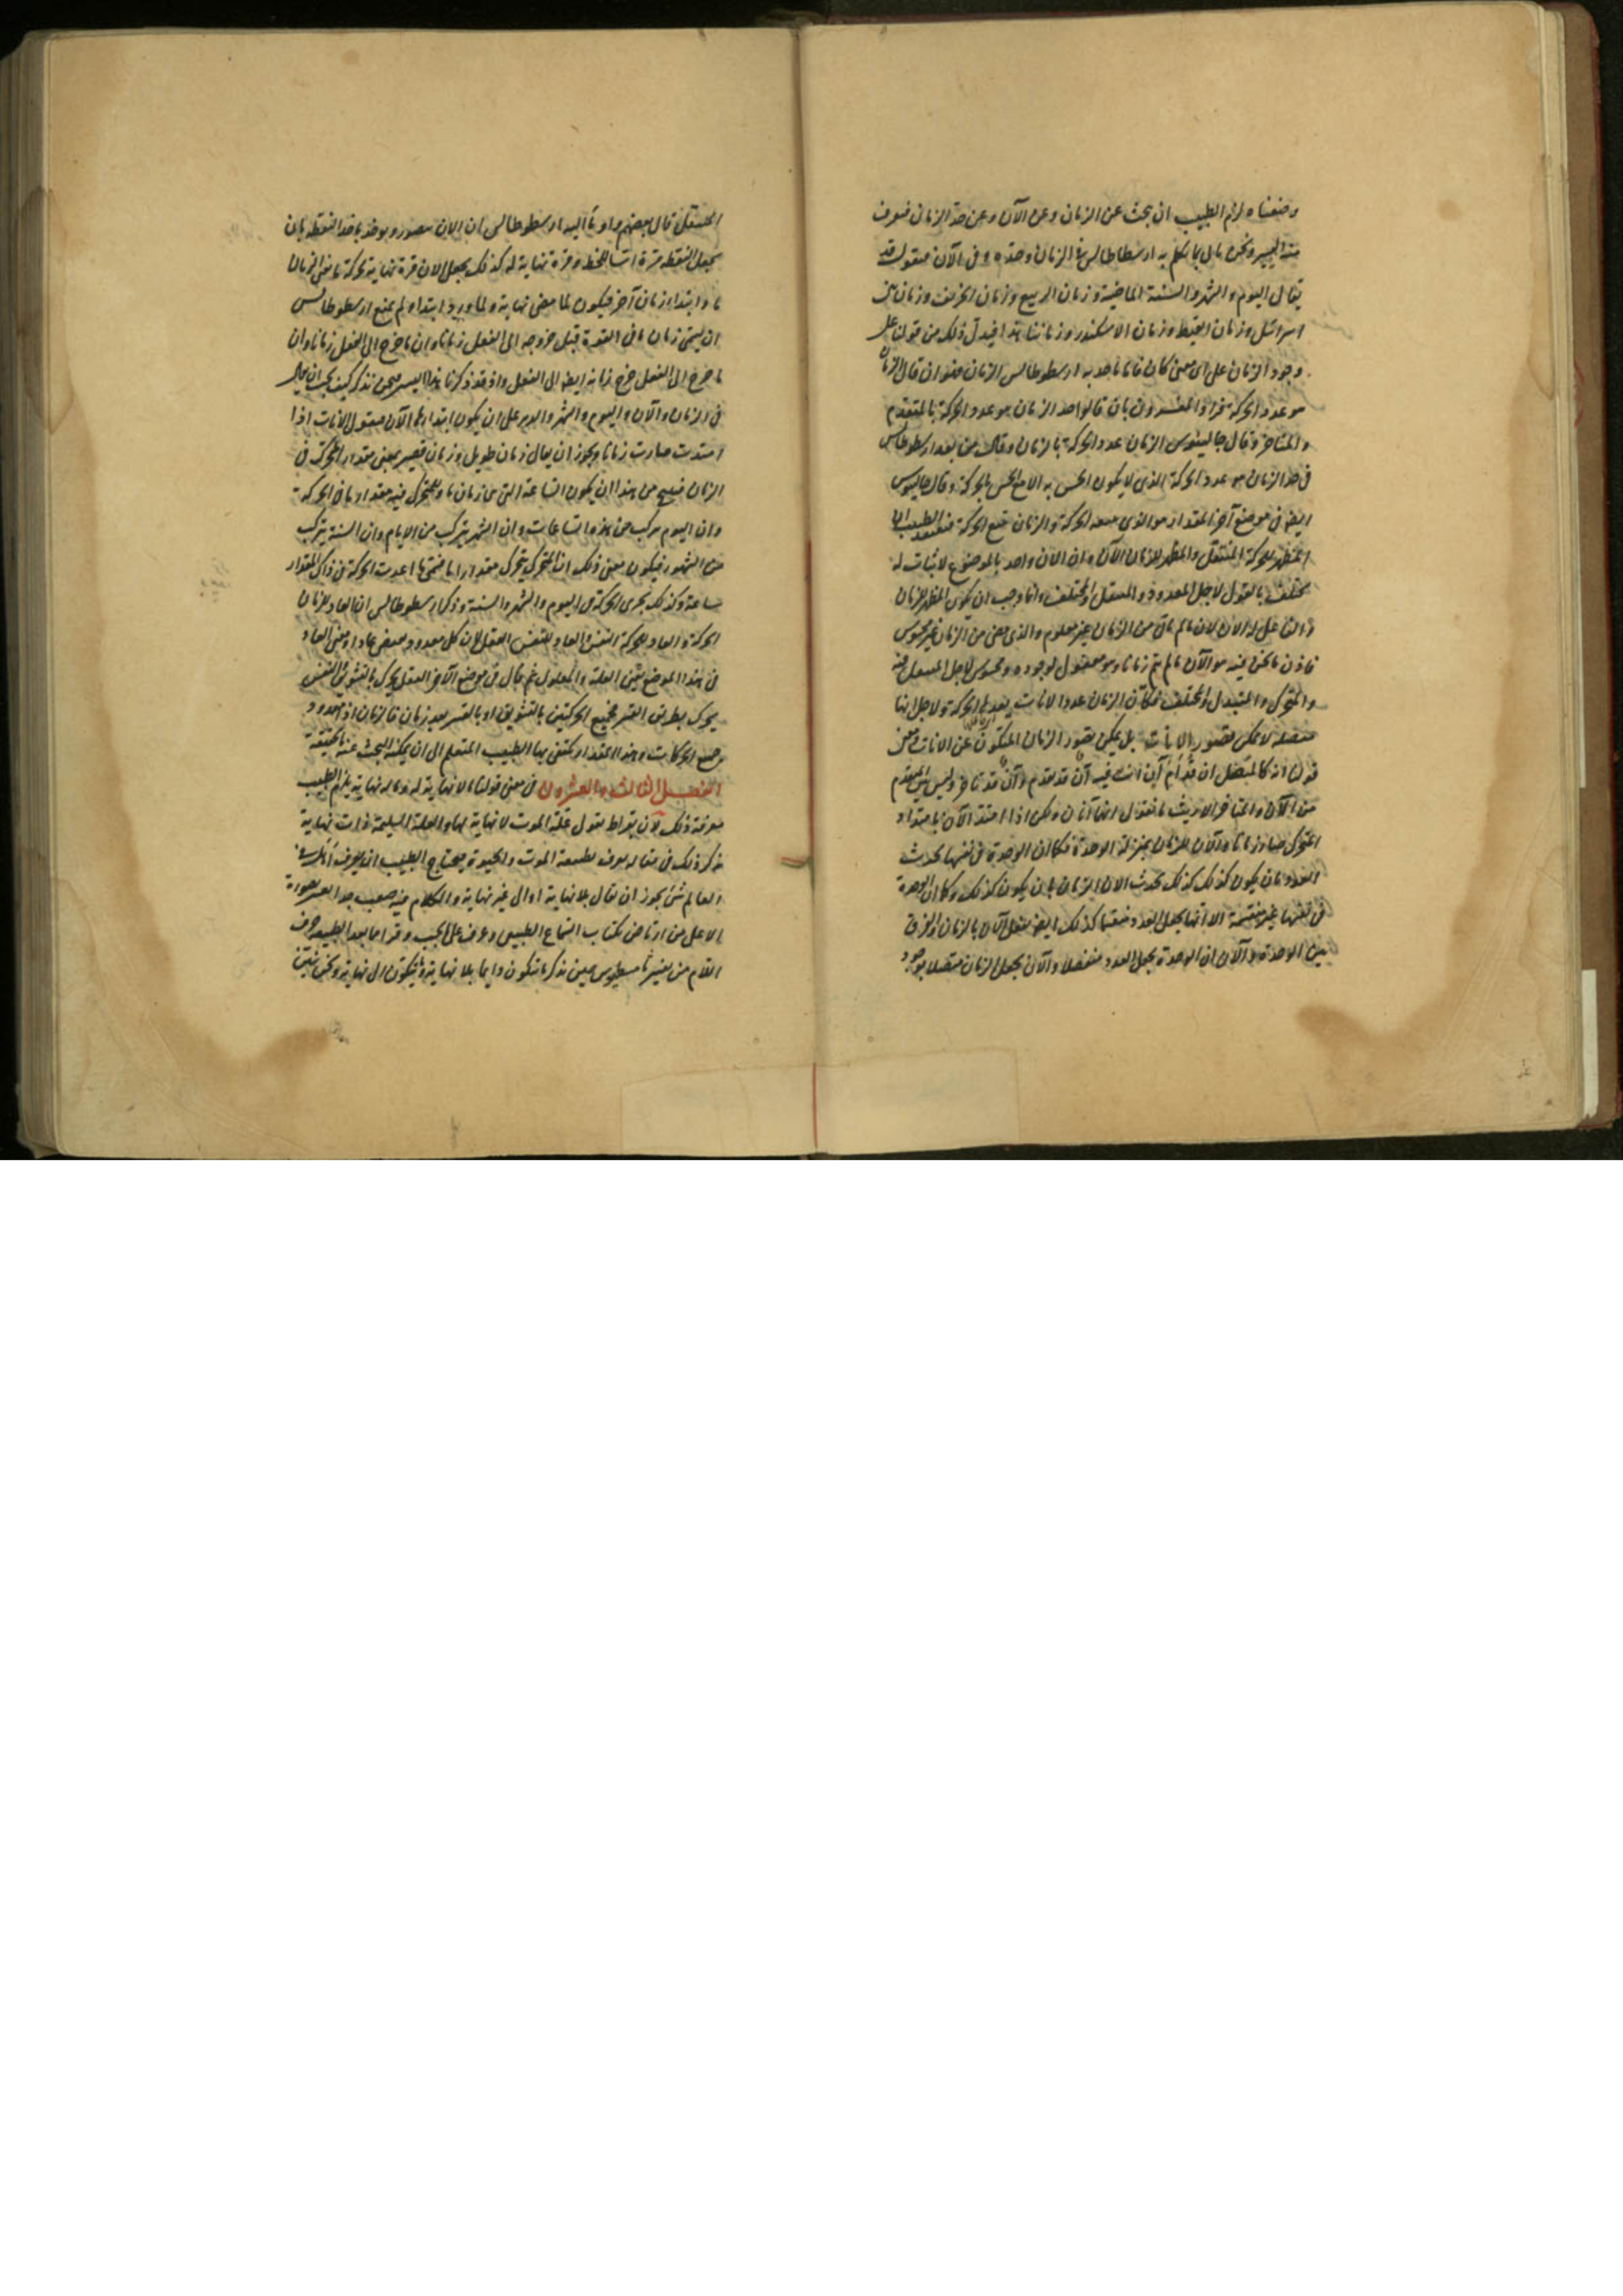 وضعناه لزم الطبيب ان يبحث عن الزمان وعن الآن وعن حد الزمان فنعرف
هذا اليسير ونحن مما تكلم به ارسطاطاليس في الزمان وحده وفي الآن فنقول قد
يقال اليوم والشهر والسنة الماضية وزمان الربيع وزمان الخريف وزمان بني
اسرائيل وزمان القبط وزمان الاسكندر وزماننا هذا فيدل ذلك من قولنا على
وجود الزمان على اى معنى كان فاما ما حد به ارسطوطاليس الزمان فهو ان قال الزمان
هو عدد الحركة المفسرون بان قالوا حد الزمان هو عدد الحركة بالمتقدم
والمتاخر وقال جالينوس الزمان عدد الحركة بالزمان وقال من بعد ارسطوطاليس
في حد الزمان هو عدد الحركة الذى لا يكون الحس به الا مع الحس بالحركة وقال جالينوس
ايضا في موضع آخر المقدار هو الذى معه الحركة والزمان تتبع الحركة
المظهر للحركة المنتقل والمظهر للزمان الآن وان الان واحد بالموضوع لا ثبات له
مختلف بالقول لاجل المعدود والمنتقل والمختلف وانما وجب ان يكون المظهر للزمان
الان لان ما لم يات من الزمان غير معلوم والذى مضى من الزمان غير محسوس
فاذن ما نحن فيه هو الآن ما لم يتم زمانا وهو معقول لوجوده ومحسوس لاجل
والمتحرك والمتبدل والمختلف فكأن الزمان عدد الانات يعدها الحركة ولاجل انها
متصلة لا يمكن تصور الانات بل يمكن تصور الزمان المتكون عن الانات ومعنى
قولنا انه كالمتصل ان قدام آن انت فيه آن قد تقدم وآن قد تاخر وليس بين المتقدم
من الآن والمتاخر الا ريث ما نقول انها آنان ولكن اذا امتد الآن بامتداد
المتحرك صار زمانا والآن للزمان بمنزلة الوحدة فكما ان الوحدة في نفسها تحدث
العدد بان يكون كذلك كذلك يحدث الان الزمان بان يكون كذلك وكما ان الوحدة
في نفسها غير منقسمة الا انها تجعل العدد منقسما كذلك ايضا يفعل الآن بالزمان والفرق
بين الوحدة والآن ان الوحدة تجعل العدد منفصلا والآن يجعل الزمان متصلا بوجود
المنتقل قال بعضهم واومأ اليه ارسطوطاليس ان الان يتصور ويوخذ باخذ النقطة بان
تجعل النقطة مرة ابتدا للخط ومرة نهاية له كذلك يجعل الان مرة نهاية لحركة ما مضى الزمان
ما وابتدا زمان آخر فيكون لما مضى نهاية ولما يرد ابتدا ولم يمنع ارسطوطاليس
ان يسمى زمان ما في القوة قبل خروجه الى الفعل زمانا وان ما خرج الى الفعل زمانا وان
ما خرج الى الفعل خرج زمانه ايضا الى الفعل واذ قد ذكرنا هذا اليسير فنحن نذكر كيف يجب ان
في الزمان والآن واليوم والشهر والدهر على ان يكون ابتداؤها الآن فنقول الانات اذا
امتدت صارت زمانا ويجوز ان يقال زمان طويل وزمان قصير بمعنى مقدار المتحرك في
الزمان فيبين من هذا ان يكون الساعة التى هى زمان ما والمتحرك فيه مقدار ما في الحركة
وان اليوم مركب من هذه الساعات وان الشهر يتركب من الايام وان السنة يتركب
من الشهور فيكون معنى ذلك ان المتحرك تحرك مقدارا ما فمتى ما اعدت الحركة في ذلك المقدار
ساعة وكذلك يجرى الحركة في اليوم والشهر والسنة وذكر ارسطوطاليس ان العاد للزمان
الحركة والعاد للحركة النفس والعاد للنفس العقل لان كل معدود يقتضى عادا ومعنى العاد
في هذا الموضع بين العلة والمعلول ثم قال في موضع آخر العقل يحرك بالتشويق النفس
يحرك بطريق القسر فجميع الحركتين بالتشويق او بالقسر يعد زمان فالزمان اذ هو عدد
جميع الحركات وهذا المقدار يكتفى بها الطبيب المتعلم الى ان يمكنه البحث عنه بالحقيقة
الفصل الثالث والعشرون في معنى قولنا ما لا نهاية له وما له نهاية يلزم الطبيب
معرفة ذلك لأن بقراط يقول علة الموت لا نهاية لها والعلة السليمة ذات نهاية
ذكر ذلك في مقاله يعرف بطبيعة الموت والحيوة فيحتاج الطبيب ان يعرف
العالم شئ يجوز ان يقال بلا نهاية او الى غير نهاية والكلام فيه صعب جدا
الا على من ارتاض بكتاب السماع الطبيعى وعرف على ما يجب وقرا ما بعد الطبيعة حرف
اللام من تفسير ثامسطيوس حين ذكر ما يتكون دايما بلا نهاية وما يتكون الى نهاية ونحن نبين